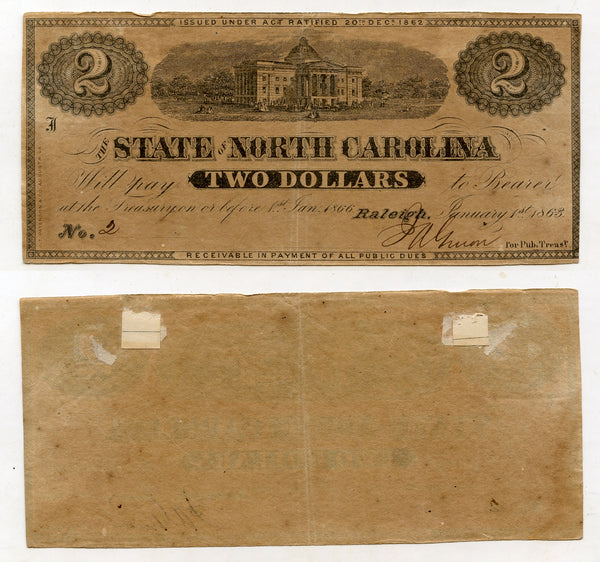 ISSUED UNDER ACT RATIFIED 20TH DEC. 1862
2 2
J
THE STATE OF NORTH CAROLINA
Will pay TWO DOLLARS to Bearer
at the Treasury, on or before 1st Jan. 1866. Raleigh, January 1st 1863.
No. 2 for Pub. Treasr.
RECEIVABLE IN PAYMENT OF ALL PUBLIC DUES